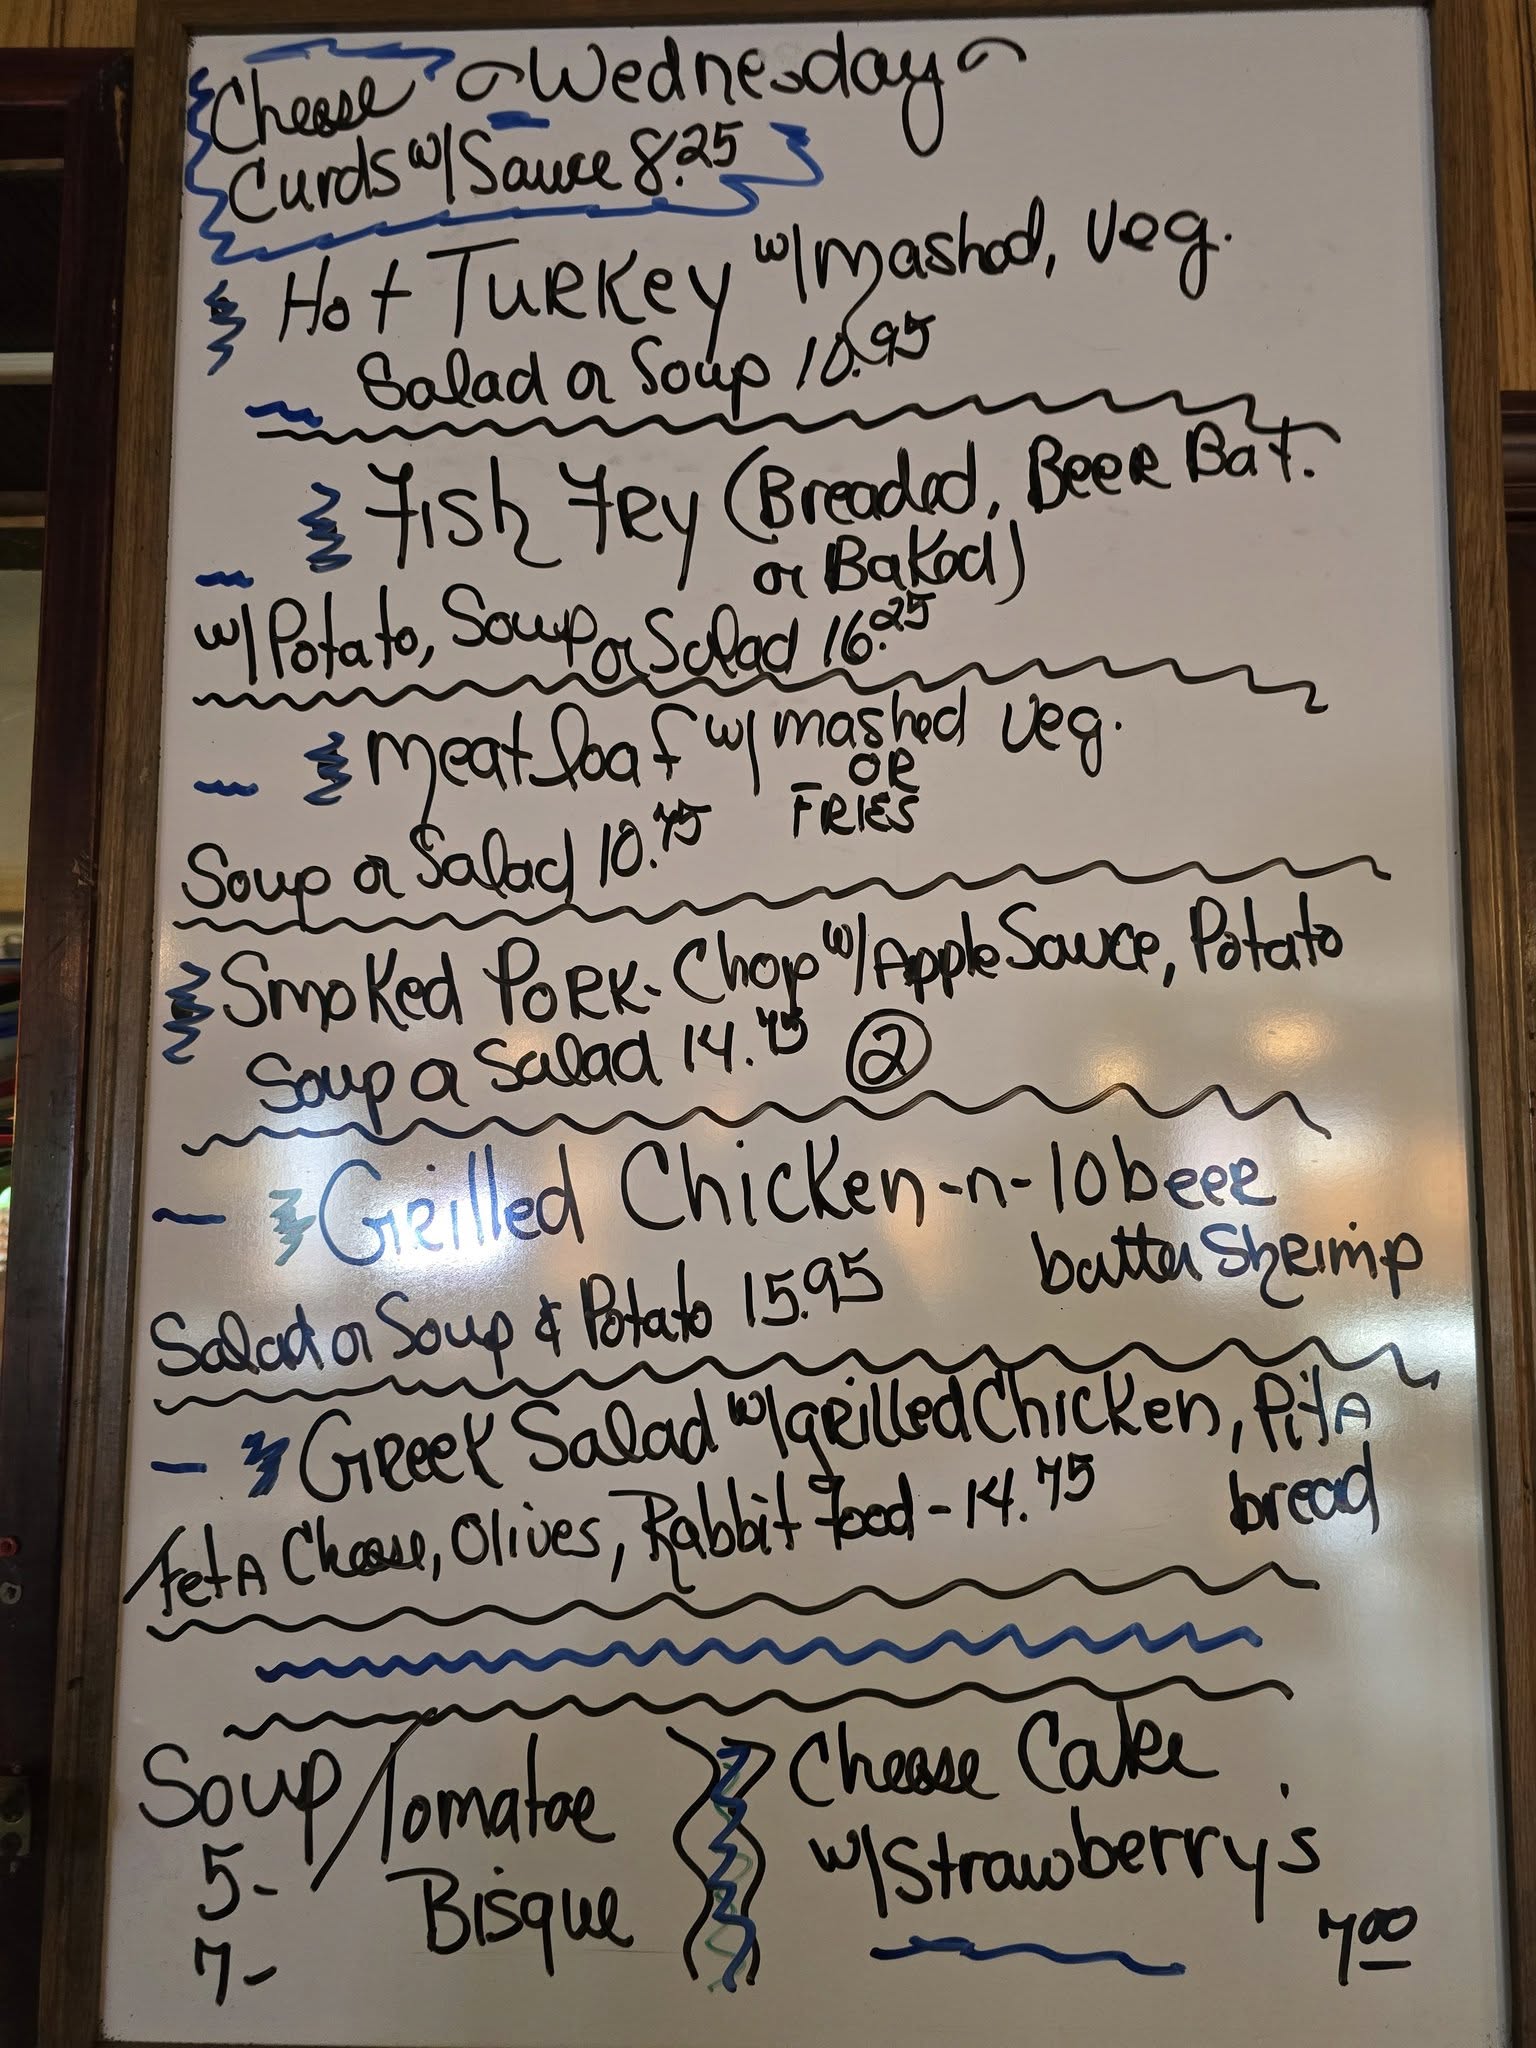 Wednesday
Cheese
Curds w/ Sauce 8.25
Hot Turkey w/ mashed, Veg.
Salad or Soup 10.95
Fish Fry (Breaded, Beer Bat.
or Baked)
w/ Potato, Soup or Salad 16.25
Meatloaf w/ mashed Veg.
OR
FRIES
Soup or Salad 10.75
Smoked Pork-Chop w/ Apple Sauce, Potato
Soup or Salad 14.75 2
Grilled Chicken-n-10 beer
batter Shrimp
Salad or Soup & Potato 15.95
Greek Salad w/ grilled Chicken, Pita
bread
Feta Cheese, Olives, Rabbit Food - 14.75
Soup / Tomatoe
Bisque
5-
7-
Cheese Cake
w/ Strawberry's
7.00